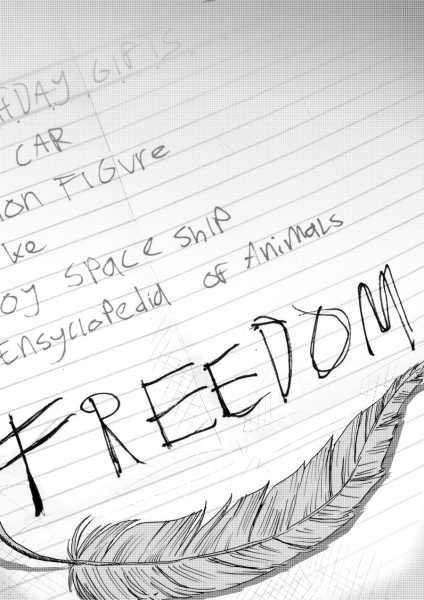 HDAY GIFTS
CAR
ION FIGURE
Ke
OY SPACE SHIP
ENSYCLOPEDIA OF ANIMALS
FREEDOM